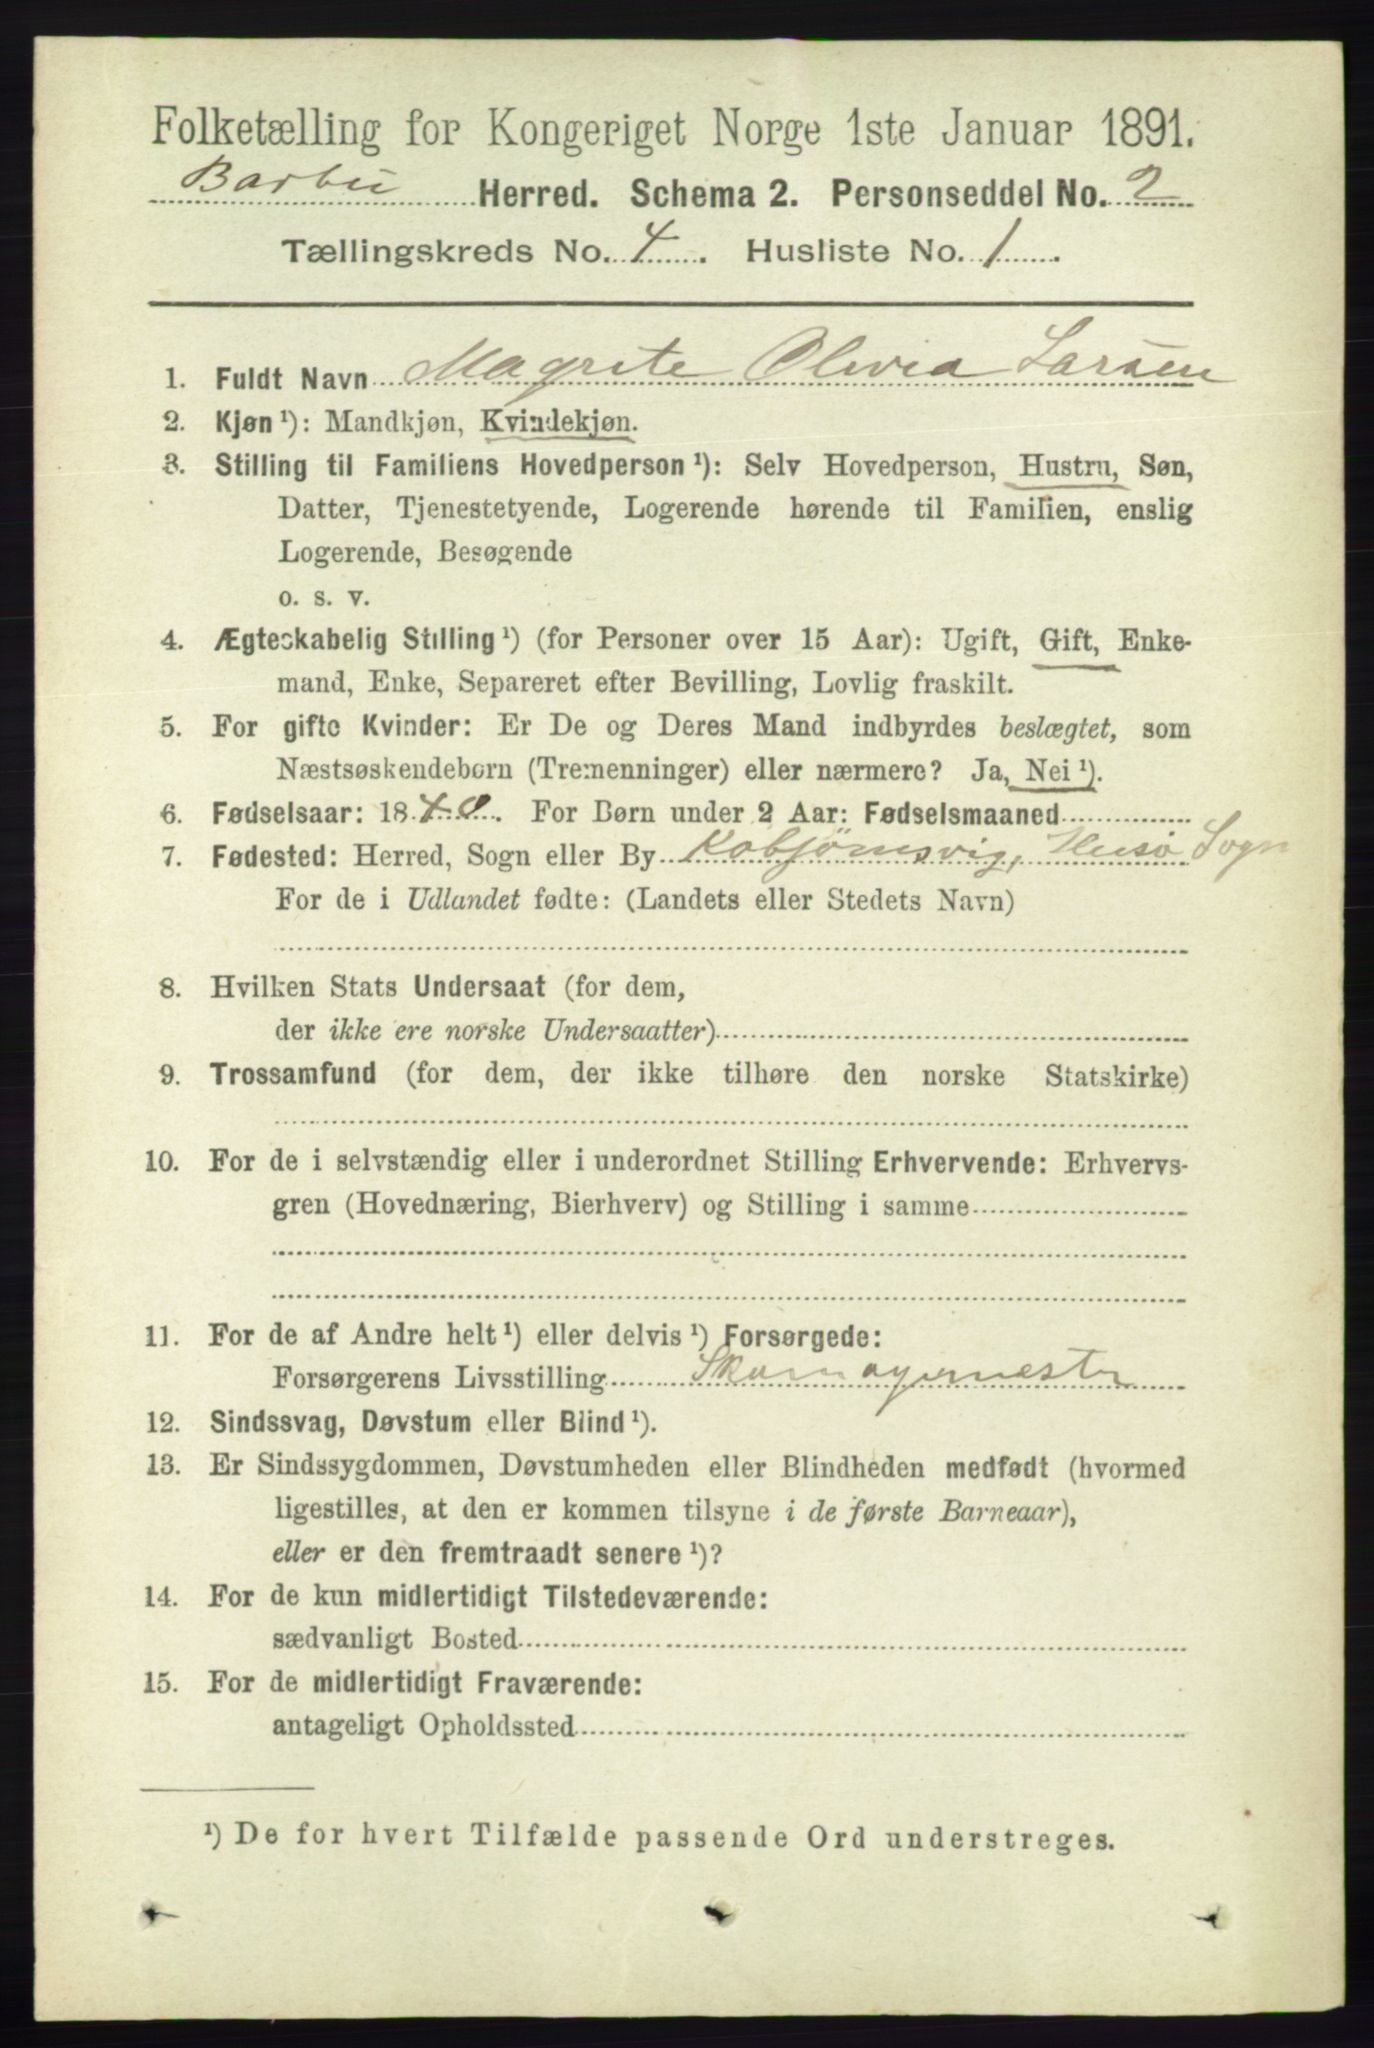 Folketælling for Kongeriget Norge 1ste Januar 1891.
Barbu Herred. Schema 2. Personseddel No. 2
Tællingskreds No. 4. Husliste No. 1.
1. Fuldt Navn Magrete Olivia Larsen
2. Kjøn¹): Mandkjøn, Kvindekjøn.
3. Stilling til Familiens Hovedperson¹): Selv Hovedperson, Hustru, Søn,
Datter, Tjenestetyende, Logerende hørende til Familien, enslig
Logerende, Besøgende
o. s. v.
4. Ægteskabelig Stilling¹) (for Personer over 15 Aar): Ugift, Gift, Enke-
mand, Enke, Separeret efter Bevilling, Lovlig fraskilt.
5. For gifte Kvinder: Er De og Deres Mand indbyrdes beslægtet, som
Næstsøskendebørn (Tremenninger) eller nærmere? Ja, Nei¹).
6. Fødselsaar: 1840. For Børn under 2 Aar: Fødselsmaaned
7. Fødested: Herred, Sogn eller By Kobjörnsvig, Huso Sogn
For de i Udlandet fødte: (Landets eller Stedets Navn)
8. Hvilken Stats Undersaat (for dem,
der ikke ere norske Undersaatter)
9. Trossamfund (for dem, der ikke tilhøre den norske Statskirke)
10. For de i selvstændig eller i underordnet Stilling Erhvervende: Erhvervs-
gren (Hovednæring, Bierhverv) og Stilling i samme
11. For de af Andre helt¹) eller delvis¹) Forsørgede:
Forsørgerens Livsstilling Skomagermester
12. Sindssvag, Døvstum eller Blind¹).
13. Er Sindssygdommen, Døvstumheden eller Blindheden medfødt (hvormed
ligestilles, at den er kommen tilsyne i de første Barneaar),
eller er den fremtraadt senere¹)?
14. For de kun midlertidigt Tilstedeværende:
sædvanligt Bosted
15. For de midlertidigt Fraværende:
antageligt Opholdssted
¹) De for hvert Tilfælde passende Ord understreges.